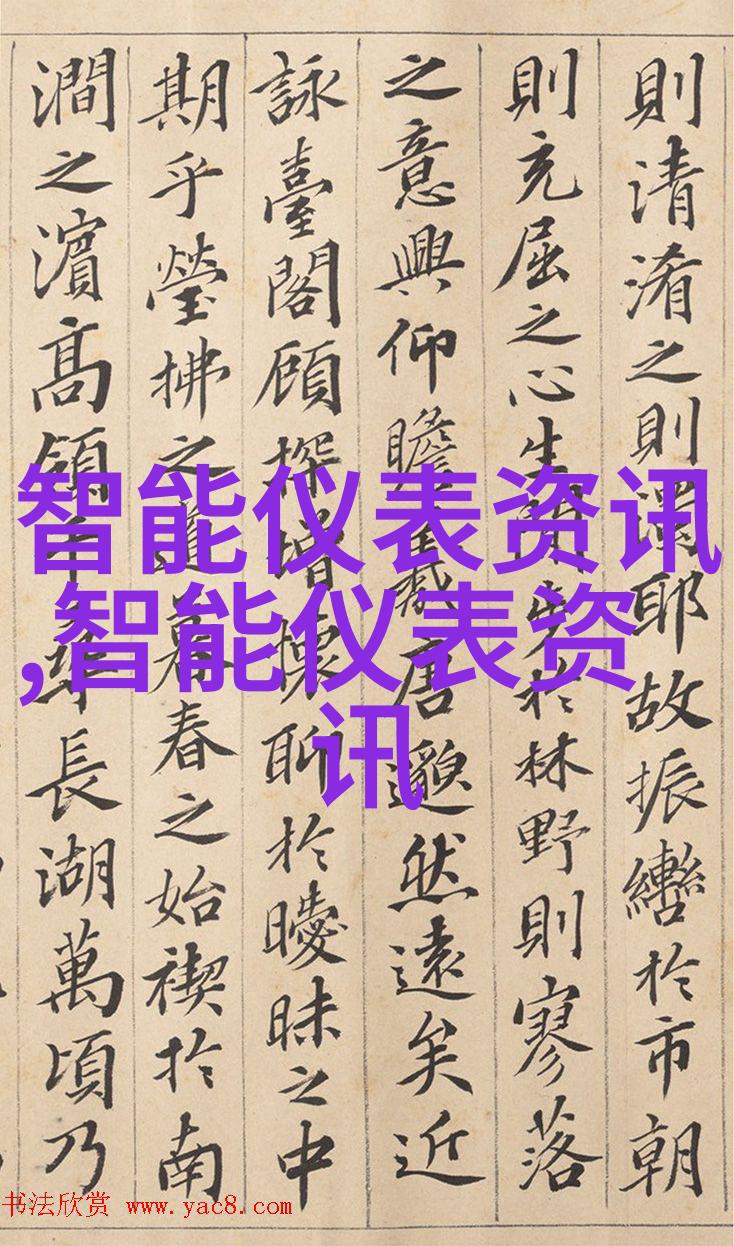 則清淆之則濁耶故振轡於市朝
則充屈之心生閒步於林野則寥落
之意興仰瞻羲唐邈然遠矣近
詠臺閣顧探增懷聊於曖昧之中
期乎瑩拂之道暮春之始禊於南
澗之濱高領千長湖萬頃乃
智能仪表资讯
,智能仪表资
讯
书法欣赏 www.yac8.com